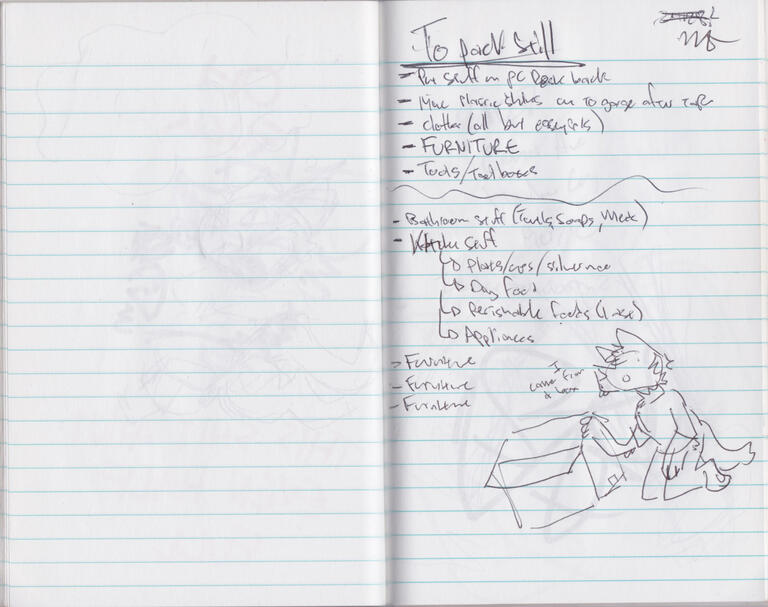 To pack still
- stuff on PC back
- to garage after
- clothes (all but essentials)
- FURNITURE
- Tools/Toolboxes
- Bathroom stuff (Towels, Soaps, Meds)
- Kitchen stuff
Plates/cups/silverware
Dry food
Perishable foods (Last)
Appliances
- Furniture
- Furniture
- Furniture
I
from
a